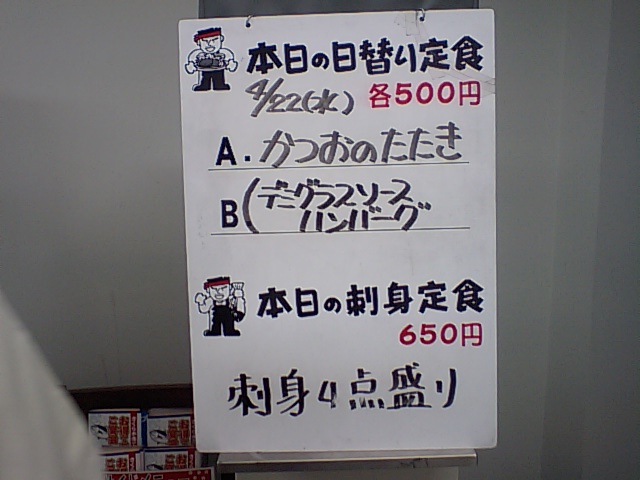 本日の日替り定食
4/22(水) 各500円
A. かつおのたたき
B (デミグラスソース
ハンバーグ
本日の刺身定食
650円
刺身4点盛り